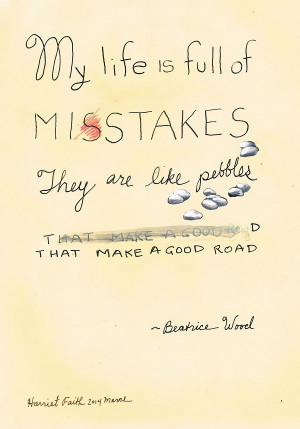 My life is full of
MISSTAKES
They are like pebbles
THAT MAKE A GOOD D
THAT MAKE A GOOD ROAD
~Beatrice Wood
Harriet Faith 2014